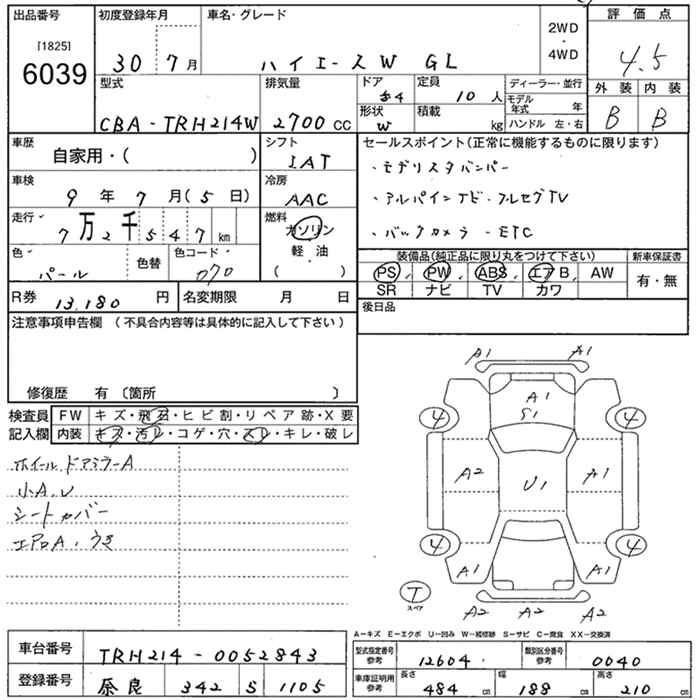 出品番号 初度登録年月 車名・グレード 2WD・4WD 評価点
[1825]
6039
30 7月 ハイエースW GL 4.5
型式 排気量 ドア 定員 ディーラー・並行 外装 内装
4 10人 モデル年式 年
CBA-TRH214W 2700cc 形状 W 積載 kg ハンドル 左・右 B B
車歴 自家用・( ) シフト IAT セールスポイント(正常に機能するものに限ります)
・モデリスタバンパー
車検 9年7月(5日) 冷房 AAC ・アルパインナビ・フルセグTV
走行 7万2千547km 燃料 ガソリン 軽・油 ( ) ・バックカメラ・ETC
色 パール 色替 色コード 070 装備品(純正品に限り丸をつけて下さい) 新車保証書
PS PW ABS エアB AW 有・無
SR ナビ TV カワ
R券 13,180円 名変期限 月 日 後日品
注意事項申告欄 (不具合内容等は具体的に記入して下さい)
修復歴 有 〔箇所 〕
検査員記入欄 FW キズ・飛石・ヒビ割・リペア跡・X要
内装 キズ・汚レ・コゲ・穴・スレ・キレ・破レ
ホイール ドアミラーA
小A.U
シートカバー
エアロA.うき
A1 A1
A1
S1
4 4
A2 U1 A1
4 4
A1 A1
T
スペア
A2 A2 A2
A-キズ E-エクボ U-凹み W-補修跡 S-サビ C-腐食 XX-交換済
車台番号 TRH214-0052843 型式指定番号 参考 12604 類別区分番号 参考 0040
登録番号 奈良 342 S 1105 車庫証明用 参考 長さ 484cm 幅 188cm 高さ 210cm